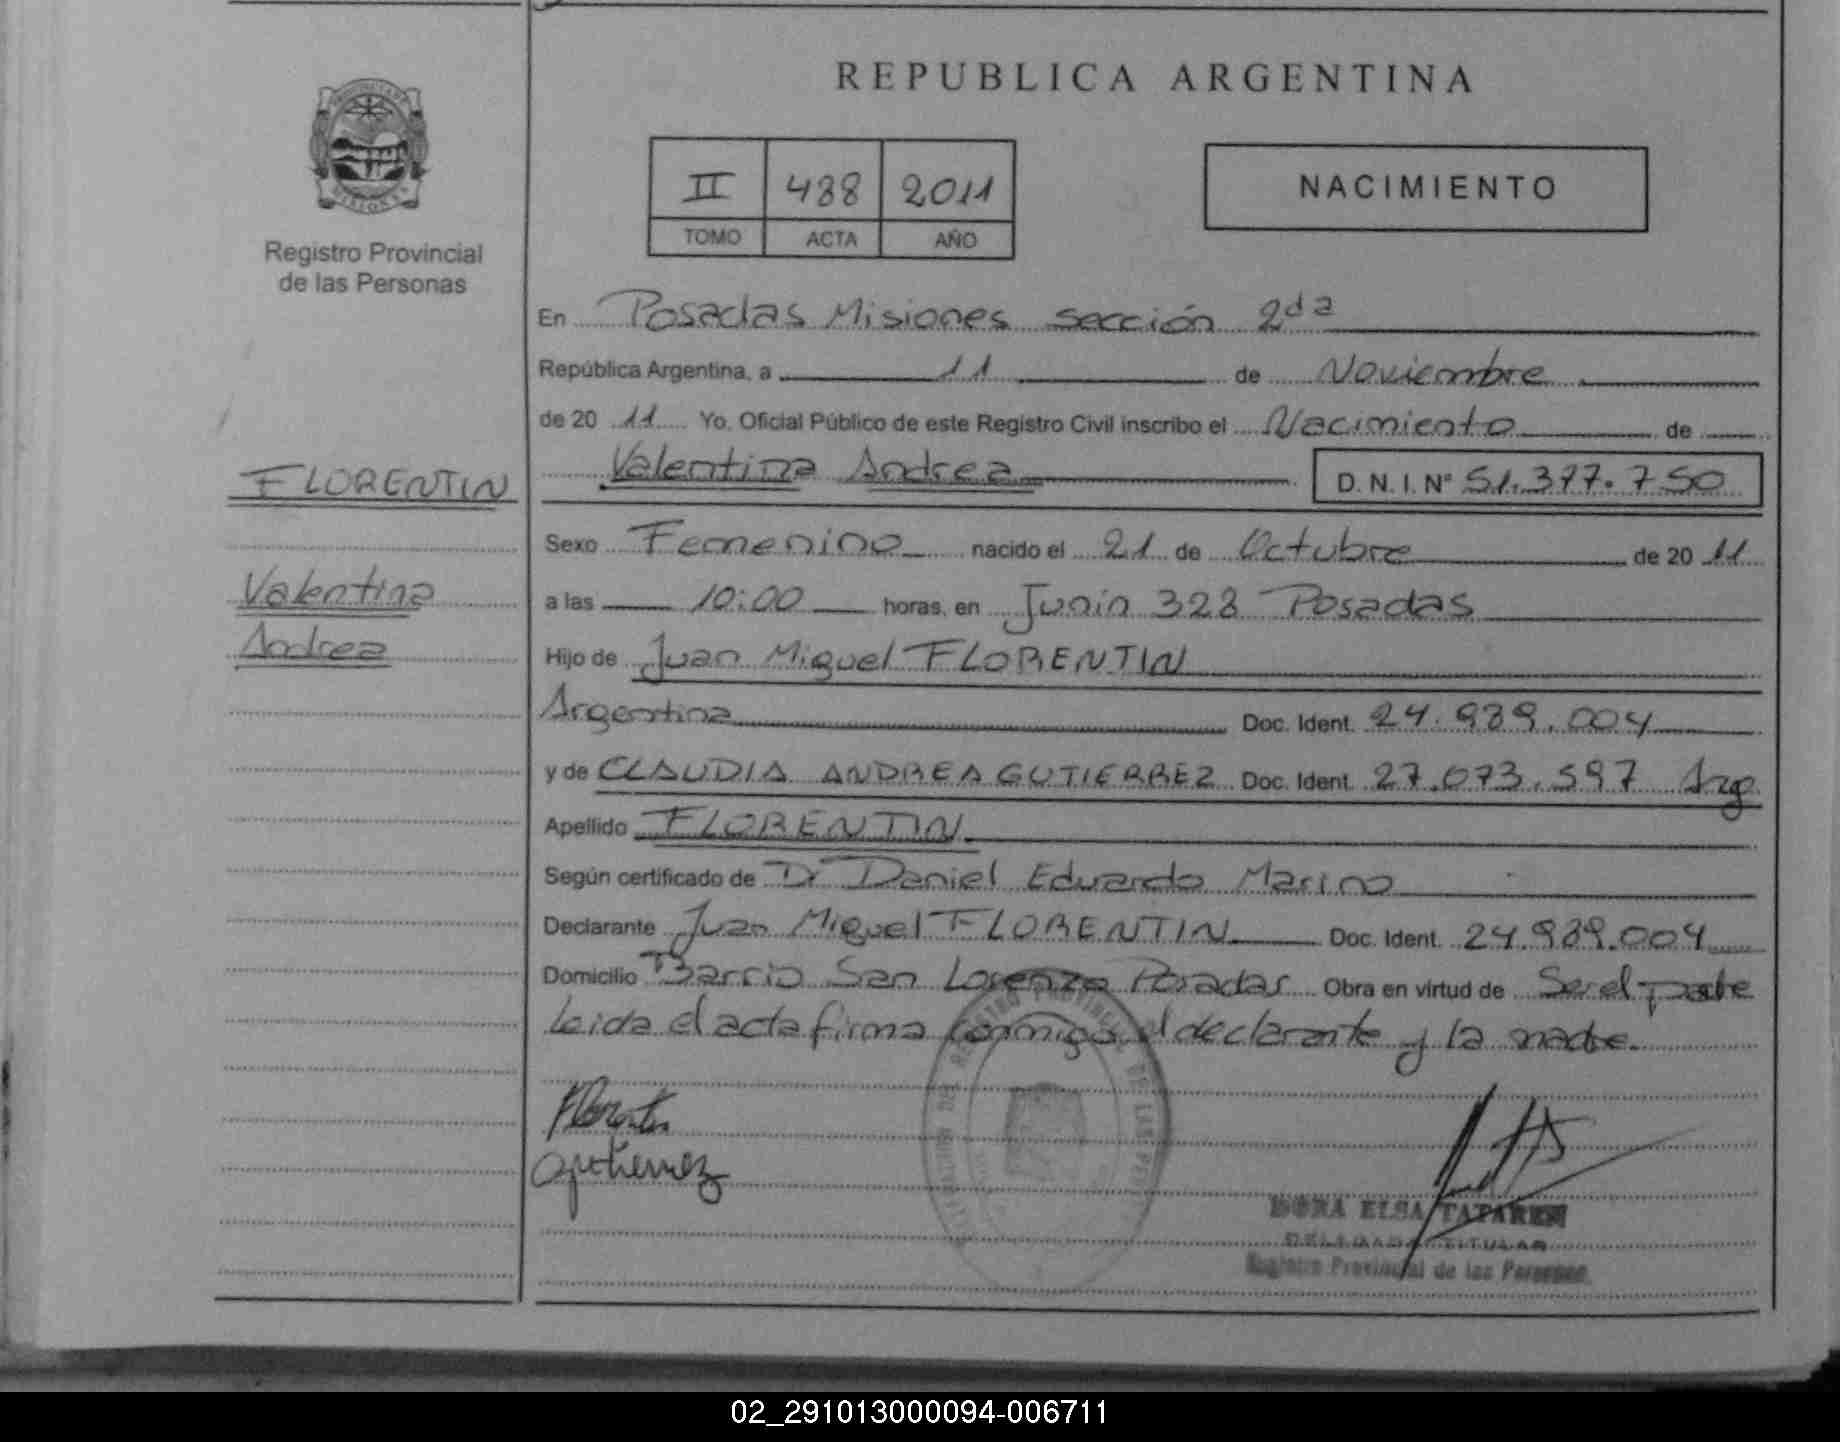 REPUBLICA ARGENTINA
II 488 2011
TOMO ACTA AÑO
NACIMIENTO
Registro Provincial
de las Personas
FLORENTIN
Valentina
Andrea
En Posadas Misiones sección 2da
República Argentina, a 11 de Noviembre
de 20 11 Yo, Oficial Público de este Registro Civil inscribo el Nacimiento de
Valentina Andrea D.N.I. N° 51.377.750
Sexo Femenino nacido el 21 de Octubre de 20 11
a las 10:00 horas, en Junin 328 Posadas
Hijo de Juan Miguel FLORENTIN
Argentina Doc. Ident. 24.989.004
y de CLAUDIA ANDREA GUTIERREZ Doc. Ident. 27.073.597 Arg
Apellido FLORENTIN
Según certificado de Dr Daniel Eduardo Marino
Declarante Juan Miguel FLORENTIN Doc. Ident. 24.989.004
Domicilio Barrio San Lorenzo Posadas Obra en virtud de Ser el padre
leida el acta firma conmigo el declarante y la madre.
Florentin
Gutierrez
REGISTRO PROVINCIAL DE LAS PER
DORA ELSA TATAREN
DELEGADA TITULAR
Registro Provincial de las Personas
02_291013000094-006711